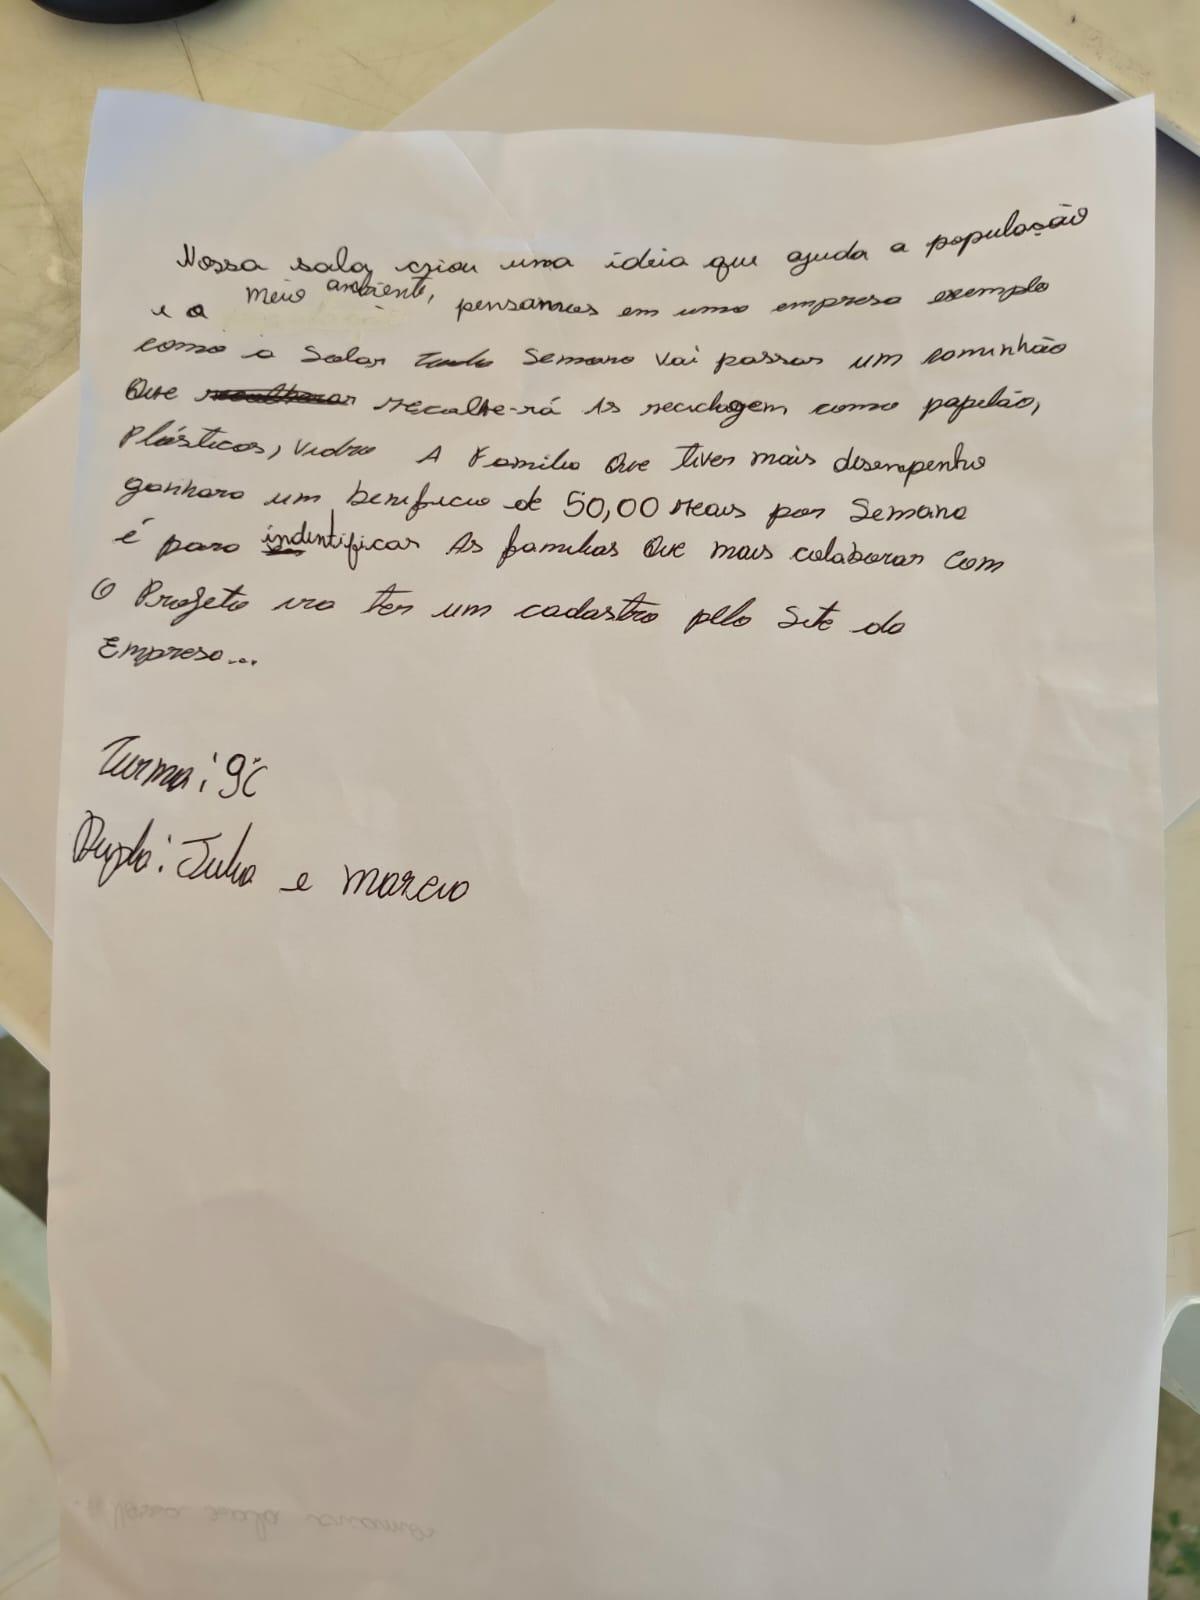 Nossa sala, criou uma ideia que ajuda a população
e o meio ambiente, pensamos em uma empresa exemplo
como a Solar Toda Semana Vai passar um caminhão
Que recolhe-rá As reciclagem, como papelão,
Plásticos, vidro A Familia Que tiver mais disempenho
ganhara um beneficio de 50,00 reais por Semana
é para indentificar As familias Que mais colaborar com
O Projeto ira ter um cadastro pelo Site da
Empresa...
Turma: 9°C
Dupla: Julia e Marcio
Nossa sala criamos